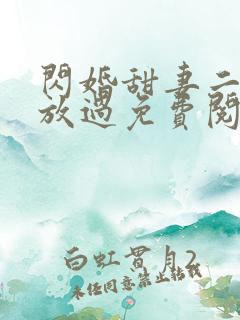 閃婚甜妻二
放過免費閱
白虹貫月2
未任同意禁止轉載